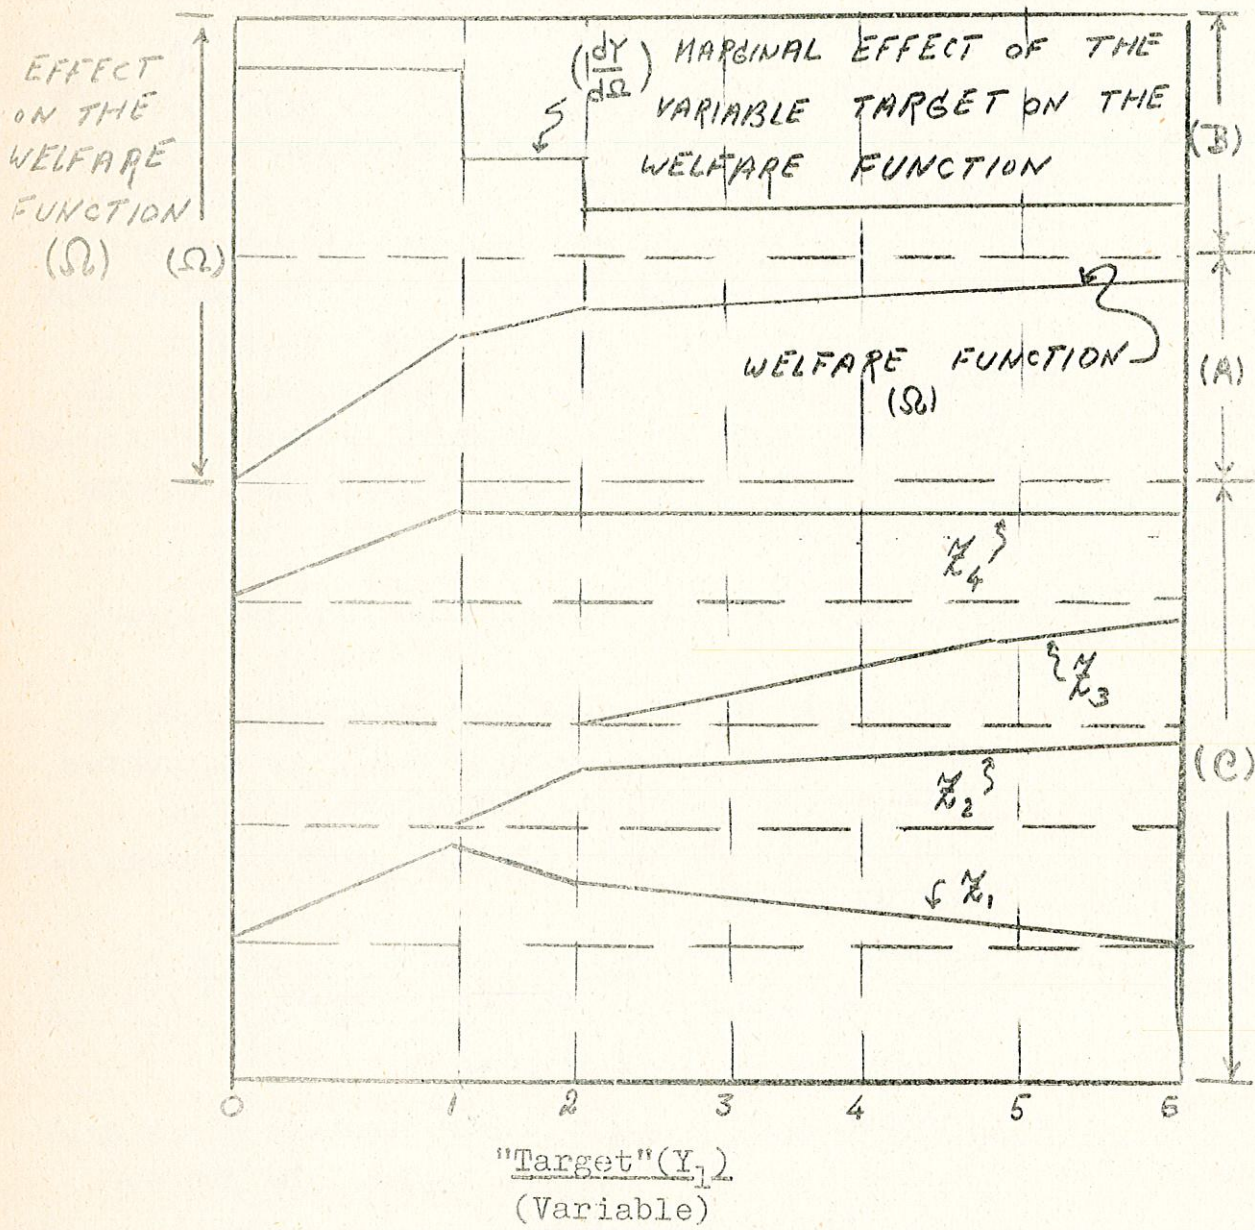 EFFECT
ON THE
WELFARE
FUNCTION
(Ω)
(Ω)
(dY/dΩ) MARGINAL EFFECT OF THE
VARIABLE TARGET ON THE
WELFARE FUNCTION
(B)
WELFARE FUNCTION
(Ω)
(A)
Z4
Z3
Z2
Z1
(C)
0 1 2 3 4 5 6
"Target"(Y1)
(Variable)